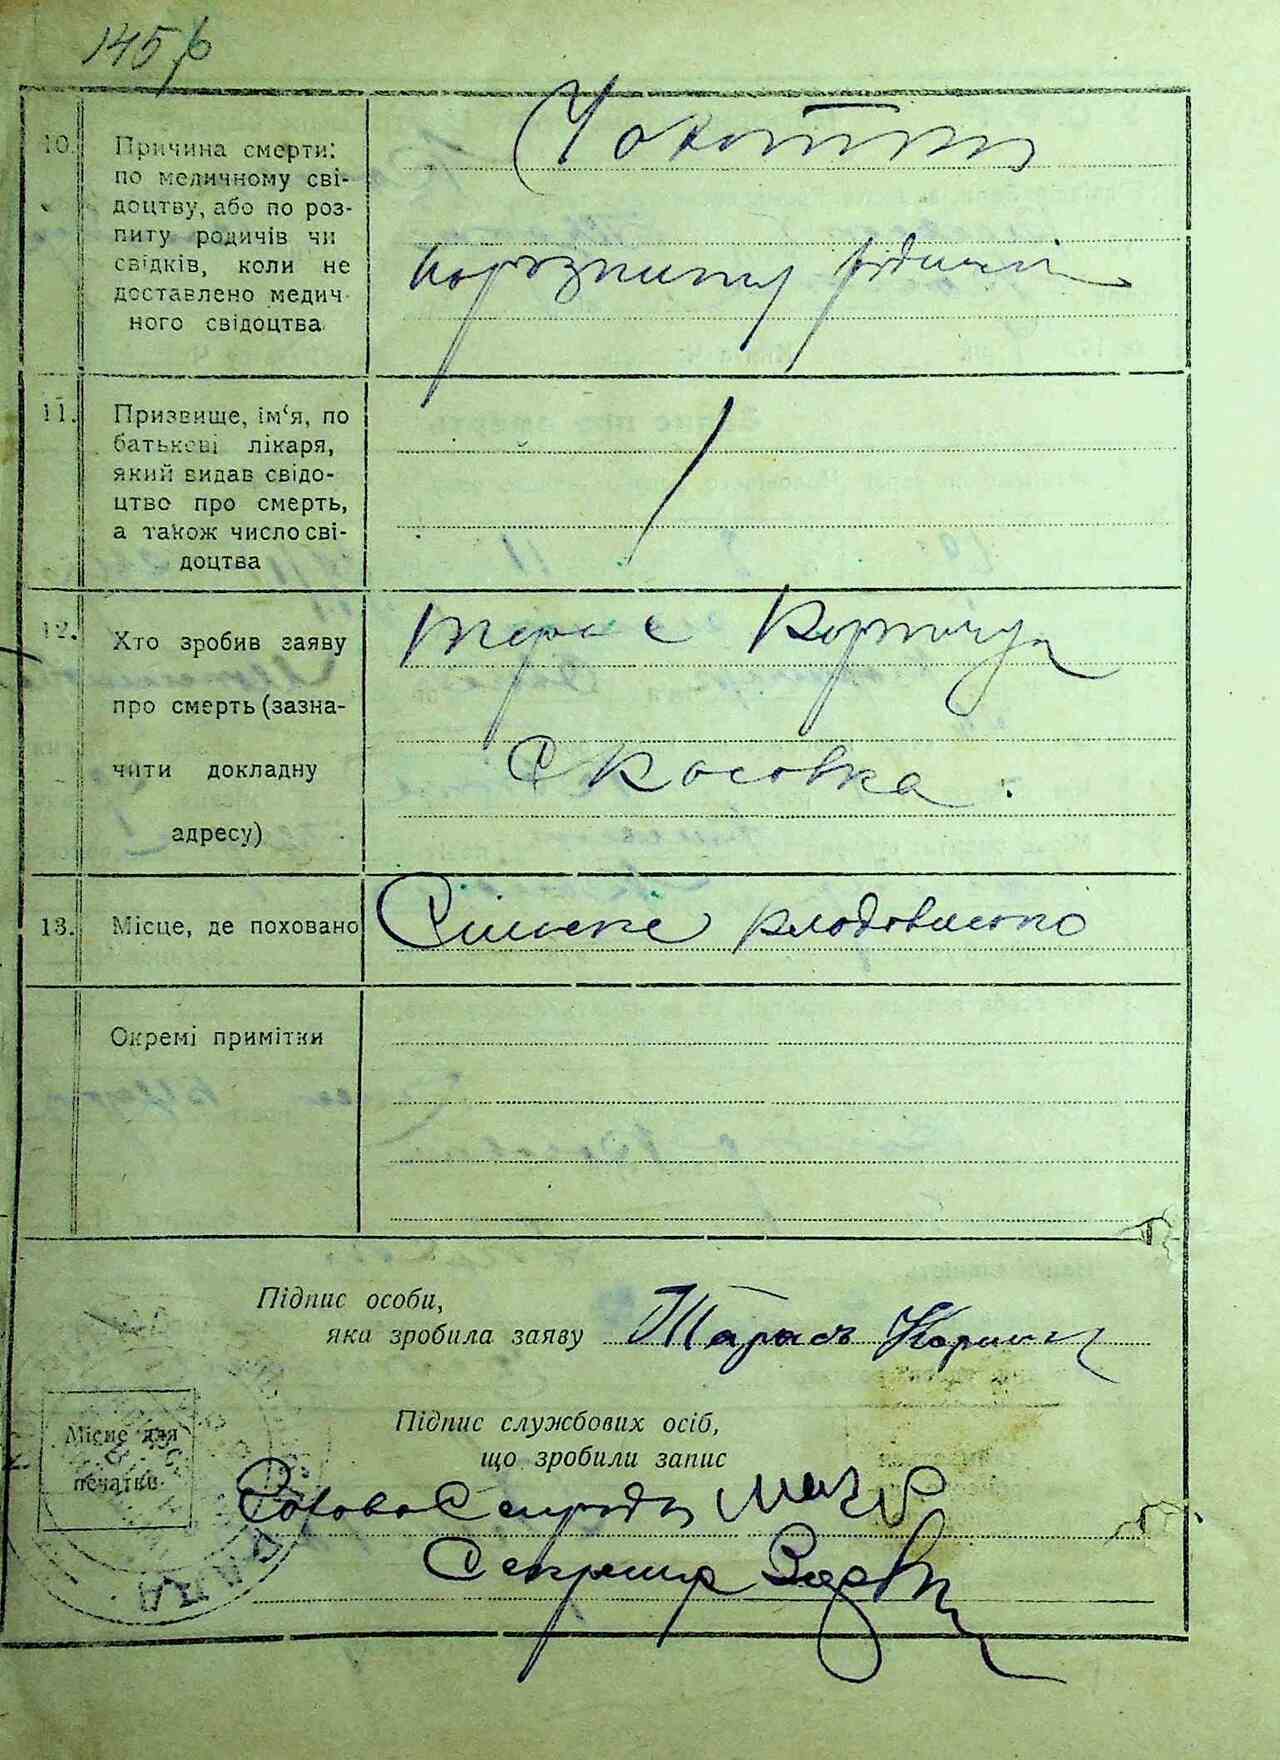 145
10. Причина смерти:
по медичному сві-
доцтву, або по роз-
питу родичів чи
свідків, коли не
доставлено медич-
ного свідоцтва
порозпиту родичів
11. Призвище, ім‘я, по
батькові лікаря,
який видав свідо-
цтво про смерть,
а також число сві-
доцтва
12. Хто зробив заяву
про смерть (зазна-
чити докладну
адресу)
Тарас
Скосовка.
13. Місце, де поховано
Сільське кладовисько
Окремі примітки
Підпис особи,
яка зробила заяву Тарась
Підпис службових осіб,
що зробили запис
Місце для
печатки
Голова Сельради
Секретар
РАДА